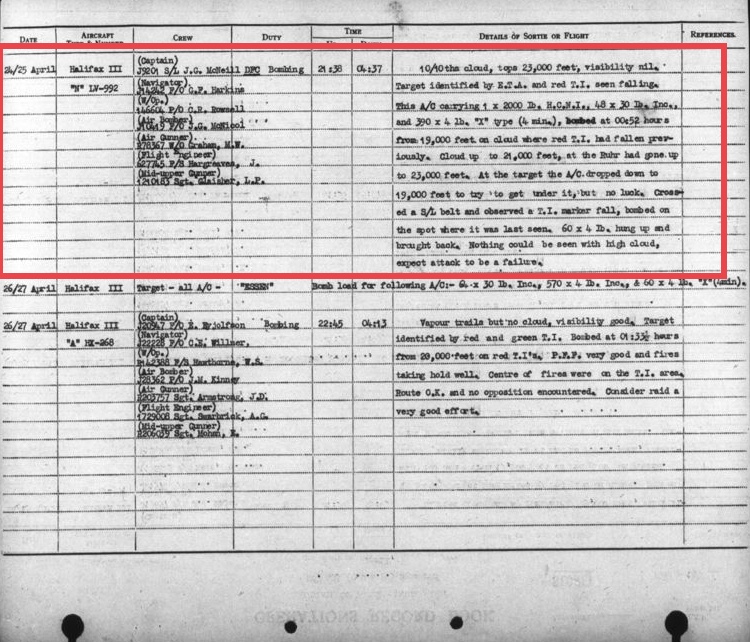 DATE AIRCRAFT TYPE & NUMBER CREW DUTY TIME DETAILS OF SORTIE OR FLIGHT REFERENCES.
24/25 April Halifax III "N" LV-992
(Captain)
J9201 S/L J.G. McNeill DFC Bombing 21:38 04:37
(Navigator)
J14242 F/O C.F. Harkins
(W/Op.)
146604 F/O C.R. Rowsell
(Air Bomber)
J10419 F/O J.G. McNicol
(Air Gunner)
R78367 W/O Graham, M.W.
(Flight Engineer)
627745 F/S Hargreaves, J.
(Mid-upper Gunner)
1210183 Sgt. L.P.
10/10ths cloud, tops 23,000 feet, visibility nil.
Target identified by E.T.A. and red T.I. seen falling.
This A/C carrying 1 x 2000 lb. H.C.N.I., 48 x 30 lb. Inc.,
and 390 x 4 lb. "X" type (4 min.), bombed at 00:52 hours
from 19,000 feet on cloud where red T.I. had fallen prev-
iously. Cloud up to 21,000 feet, at the Ruhr had gone up
to 23,000 feet. At the target the A/C. dropped down to
19,000 feet to try to get under it, but no luck. Cross-
ed a S/L belt and observed a T.I. marker fall, bombed on
the spot where it was last seen. 60 x 4 lb. hung up and
brought back. Nothing could be seen with high cloud,
expect attack to be a failure.
26/27 April Halifax III Target - all A/C - "ESSEN" Bomb load for following A/C:- 64 x 30 lb. Inc., 570 x 4 lb. Inc., & 60 x 4 lb. "X"(4min).
26/27 April Halifax III "A" HX-268
(Captain)
J20947 F/O E. Eyjolfson Bombing 22:45 04:13
(Navigator)
J22228 F/O C.E. Willner,
(W/Op.)
R142388 F/S Hawthorne, W.S.
(Air Bomber)
J28362 F/O J.M. Kinney
(Air Gunner)
R203757 Sgt. Armstrong, J.D.
(Flight Engineer)
1729008 Sgt. Swarbrick, A.G.
(Mid-upper Gunner)
R206039 Sgt. Mohan, E.
Vapour trails but no cloud, visibility good. Target
identified by red and green T.I. Bombed at 01:33½ hours
from 20,000 feet on red T.I's. P.F.F. very good and fires
taking hold well. Centre of fires were on the T.I. area.
Route O.K. and no opposition encountered. Consider raid a
very good effort.